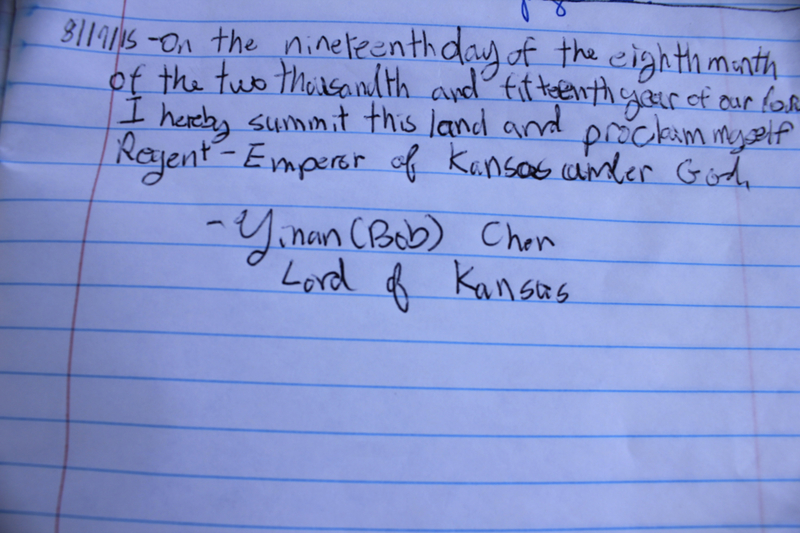 8/19/15 - On the nineteenth day of the eighth month
of the two thousandth and fifteenth year of our lord
I hereby summit this land and proclaim myself
Regent - Emperor of Kansas under God,
- Yinan (Bob) Chen
Lord of Kansas